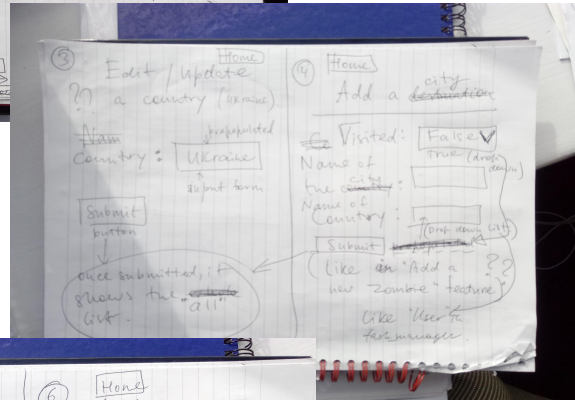 3
Home
Edit / Update
?? a country (Ukraine)
prepopulated
Country : Ukraine
input form
Submit
button
once submitted, it
shows the "all"
list.
4
Home
city
Add a
Visited: False
True (drop
down)
Name of
the city :
Name of
Country :
(Drop down list)
Submit
(Like in "Add a
new Zombie" feature) ??
Like "User" in
6
Home